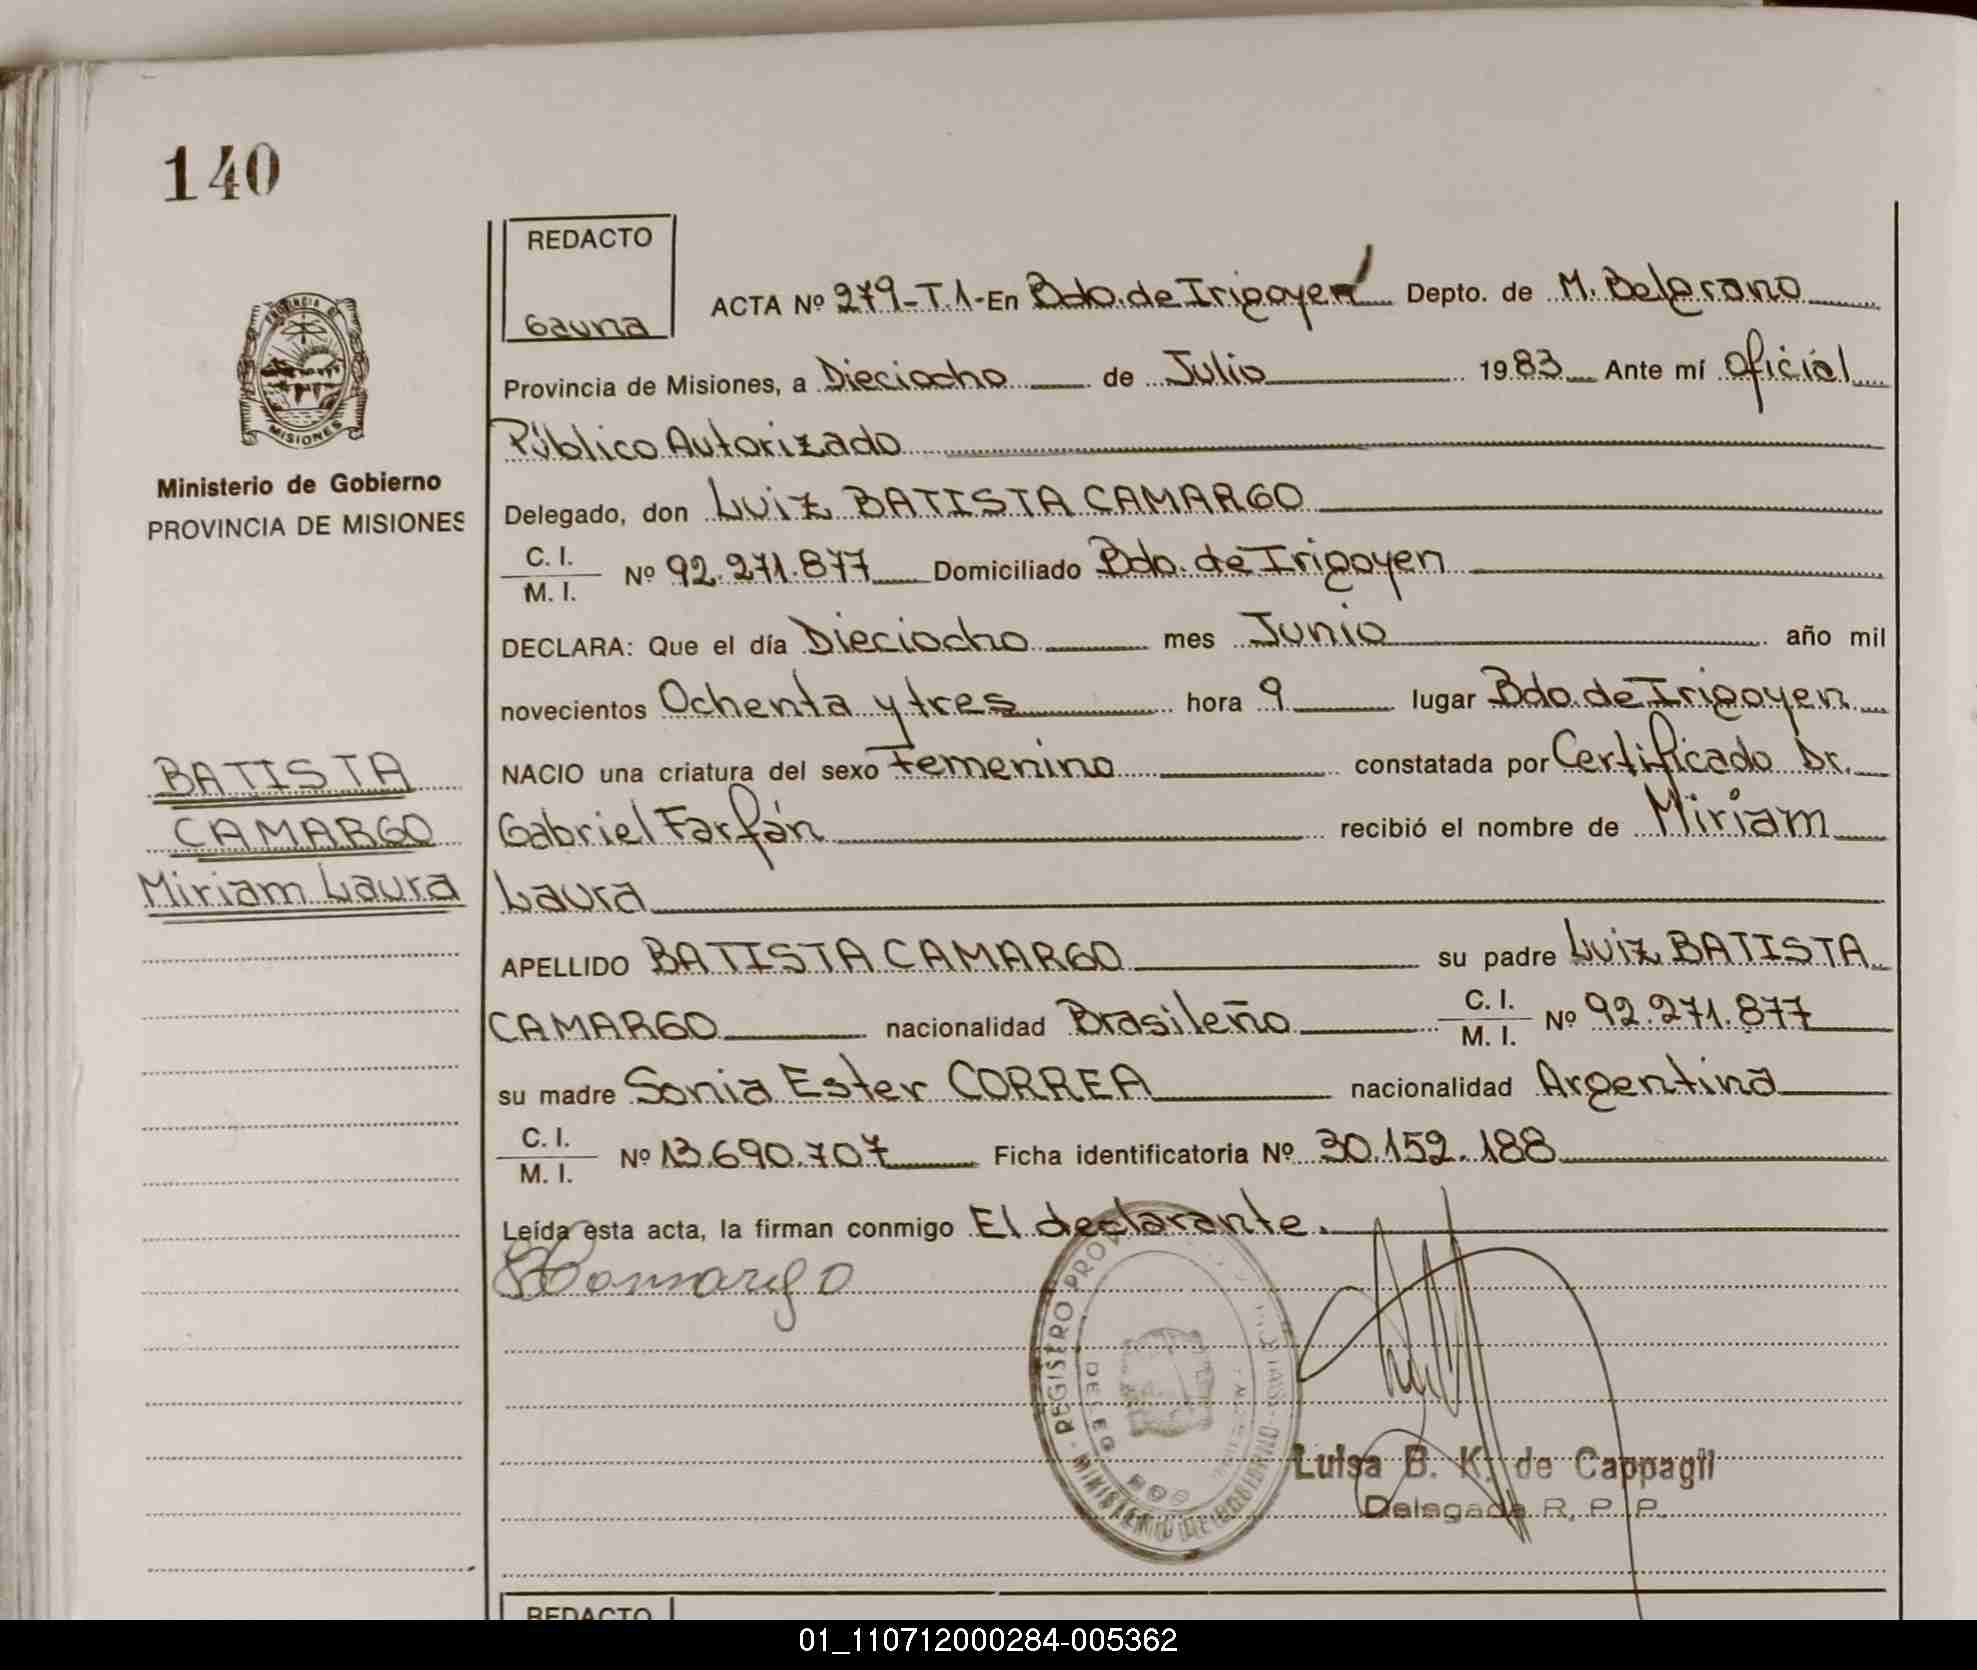 140
REDACTO
Gauna
ACTA Nº 279-T.1- En Bdo. de Irigoyen Depto. de M. Belgrano
Provincia de Misiones, a Dieciocho de Julio 1983 Ante mí Oficial
Público Autorizado
Delegado, don Luiz BATISTA CAMARGO
C. I.
M. I. Nº 92.271.877 Domiciliado Bdo. de Irigoyen
DECLARA: Que el día Dieciocho mes Junio año mil
novecientos Ochenta y tres hora 9 lugar Bdo. de Irigoyen
NACIO una criatura del sexo Femenino constatada por Certificado Dr.
Gabriel Farfán recibió el nombre de Miriam
Laura
APELLIDO BATISTA CAMARGO su padre Luiz BATISTA
CAMARGO nacionalidad Brasileño C. I. M. I. Nº 92.271.877
su madre Sonia Ester CORREA nacionalidad Argentina
C. I.
M. I. Nº 13.690.707 Ficha identificatoria Nº 30.152.188
Leída esta acta, la firman conmigo El declarante.
PROVINCIA D
MISIONES
Ministerio de Gobierno
PROVINCIA DE MISIONES
BATISTA
CAMARGO
Miriam Laura
Camargo
REGISTRO PROV
MINISTERIO DE GOBIERNO
DELEG
Luisa B. K. de Cappagli
Delegada R. P. P.
REDACTO
01_110712000284-005362